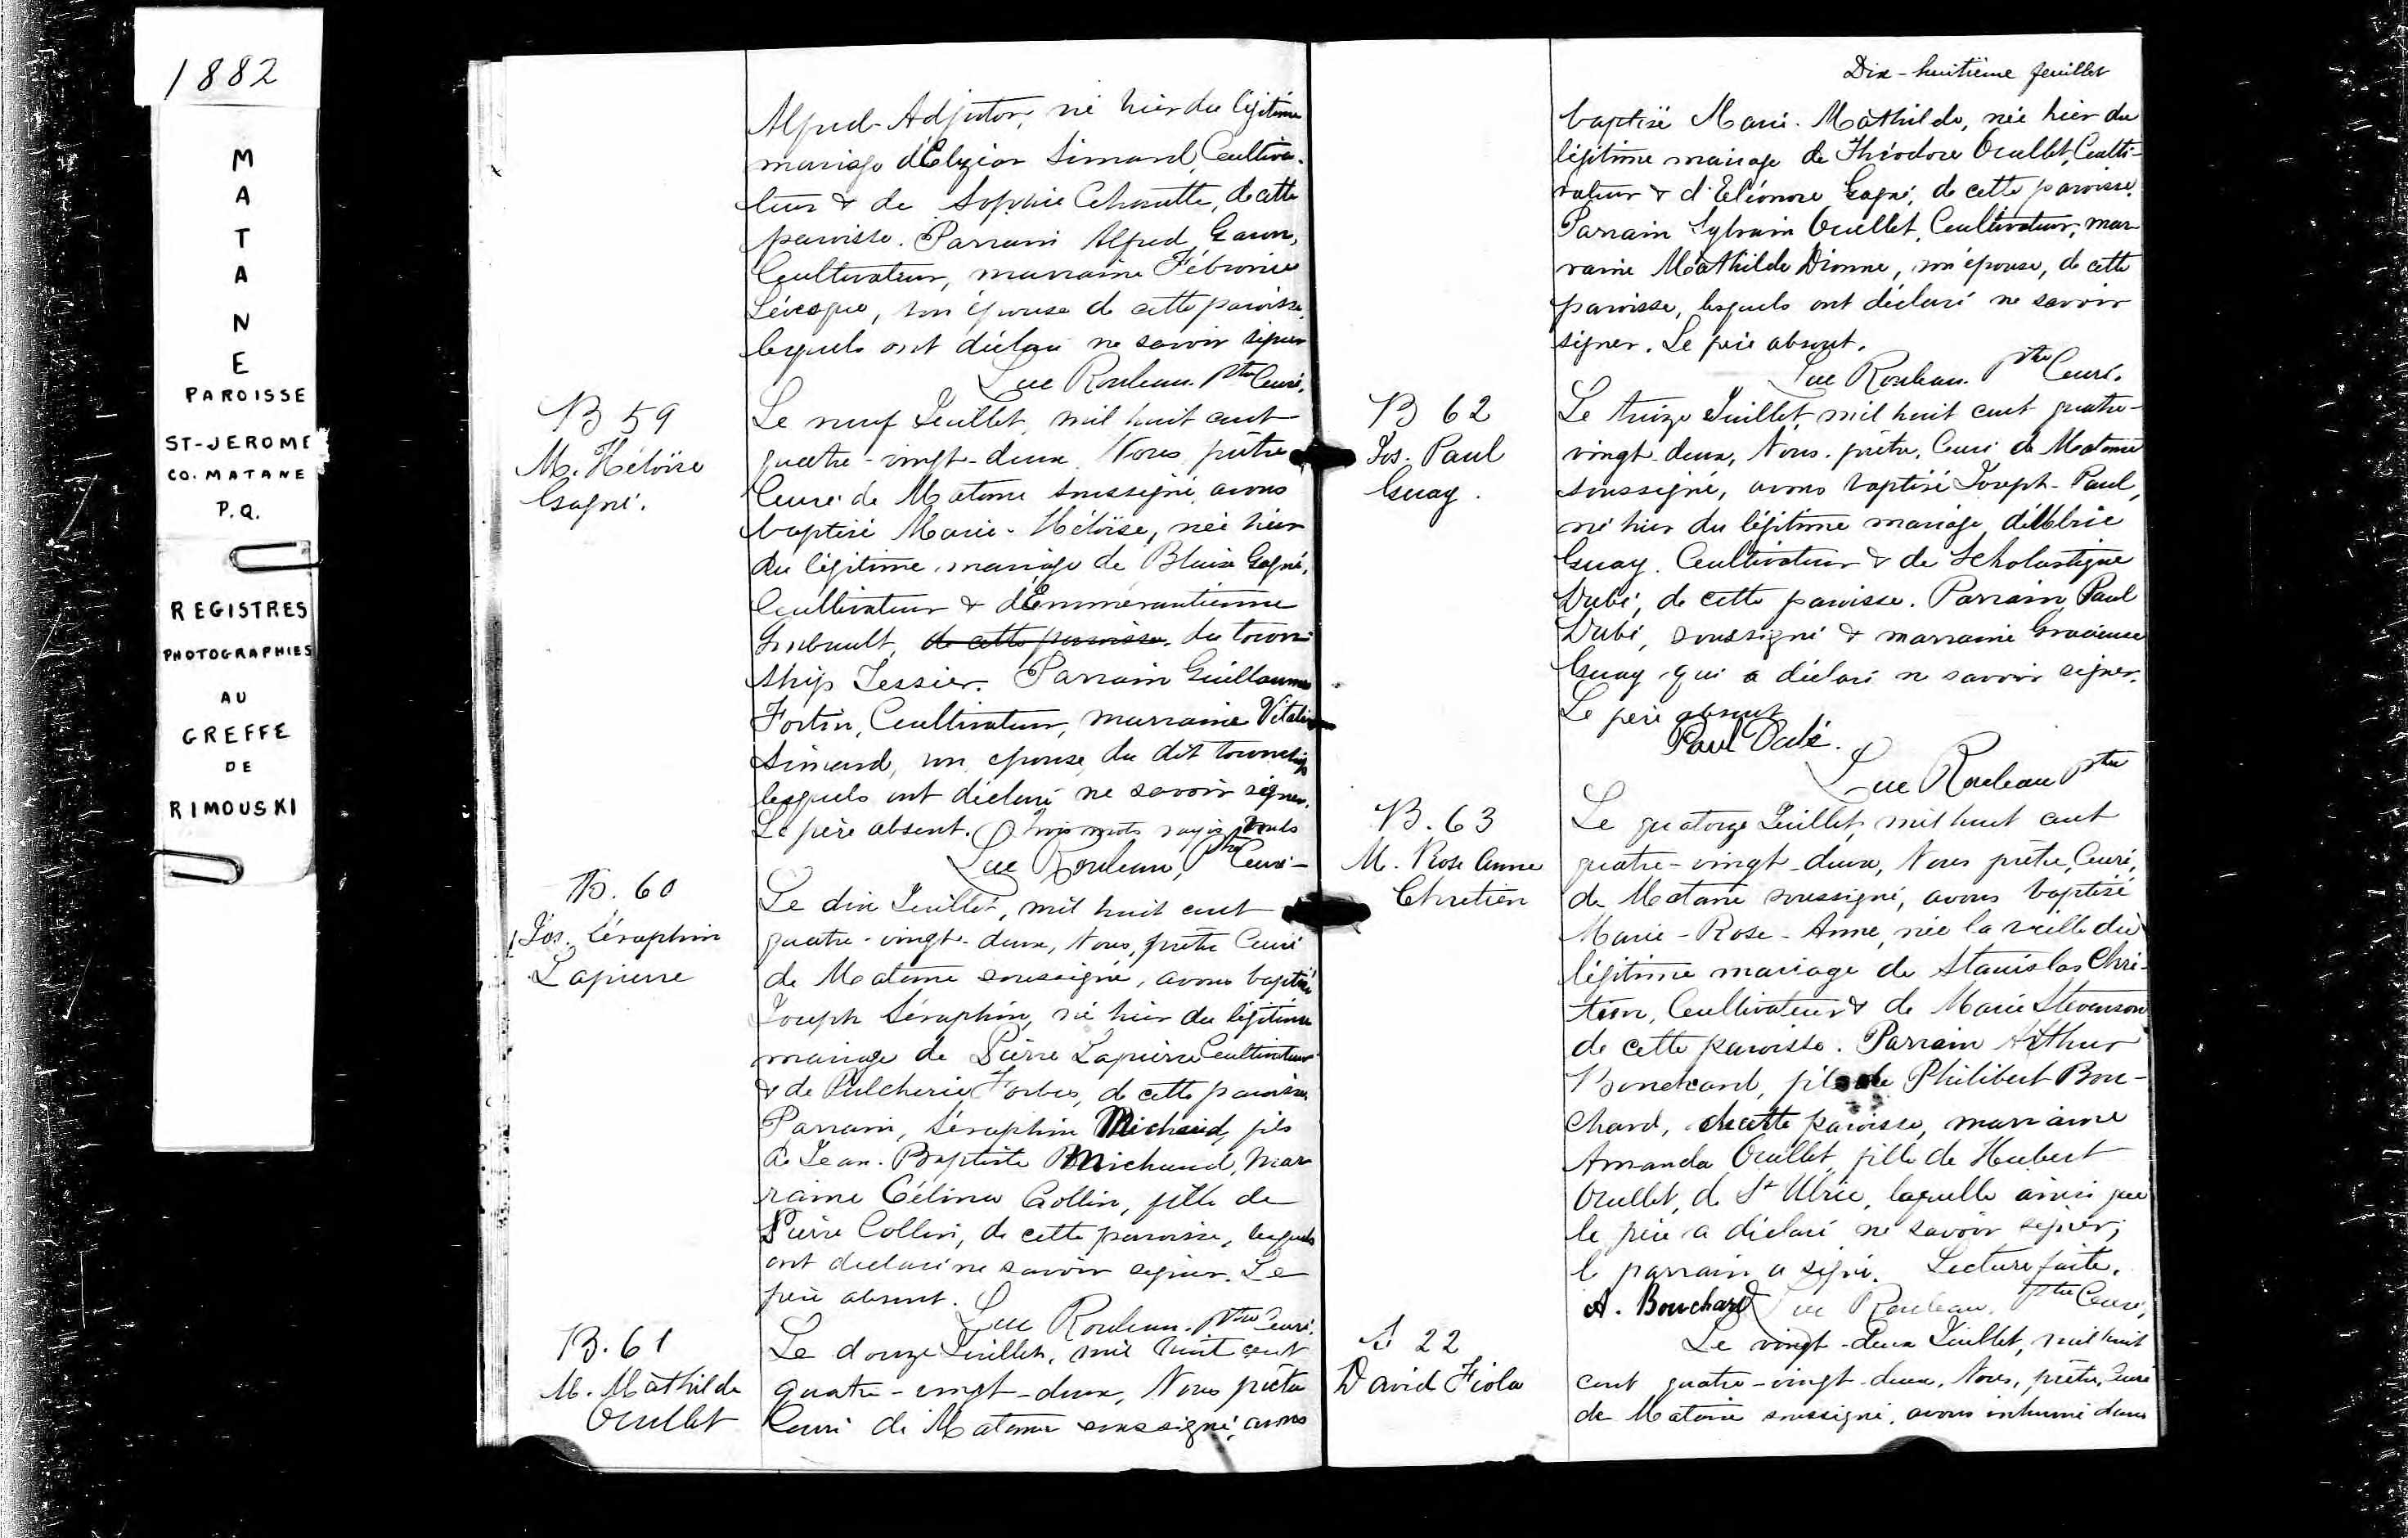 1882
M
A
T
A
N
E
PAROISSE
ST-JEROME
CO. MATANE
P.Q.
REGISTRES
PHOTOGRAPHIES
AU
GREFFE
DE
RIMOUSKI
Alfred-Adjutor, né hier du légitime
mariage d'Elzéar Simard, Cultiva-
teur & de Sophie Chouette, de cette
paroisse. Parrain Alfred Garon,
Cultivateur, marraine Fébronie
Lévesque, son épouse de cette paroisse,
lesquels ont déclaré ne savoir signer
Luc Rouleau Ptre Curé.
B 59
M. Héloïse
Gagné.
Le neuf Juillet, mil huit cent
quatre-vingt-deux Nous prêtre
Curé de Matane soussigné avons
baptisé Marie-Héloïse, née hier
du légitime mariage de Blaise Gagné,
Cultivateur & d'Emmérantienne
Imbault, de cette paroisse. du town
ship Tessier. Parrain Guillaume
Fortin, Cultivateur, marraine
Simard, son épouse, du dit township
lesquels ont déclaré ne savoir signer.
Le père absent. Trois mots rayés nuls
Luc Rouleau, Ptre Curé
B. 60
Jos. Séraphin
Lapierre
Le dix Juillet, mil huit cent
quatre-vingt-deux, Nous, prêtre Curé
de Matane soussigné, avons baptisé
Joseph Séraphin, né hier du légitime
mariage de Pierre Lapierre Cultivateur
& de Pulcherie Forbes, de cette paroisse
Parrain, Séraphin Michaud, fils
de Jean-Baptiste Michaud, mar
raine Célina Collin, fille de
Pierre Collin, de cette paroisse, lesquels
ont déclaré ne savoir signer. Le
père absent.
Luc Rouleau. Ptre Curé.
B. 61
M. Mathilde
Ouellet
Le douze Juillet, mil huit cent
quatre-vingt-deux, Nous prêtre
Curé de Matane soussigné, avons
Dix-huitième feuillet
baptisé Marie-Mathilde, née hier du
légitime mariage de Théodore Ouellet, Culti-
vateur & d'Eléonore Gagné, de cette paroisse.
Parrain Sylvain Ouellet, Cultivateur, mar
raine Mathilde Dionne, son épouse, de cette
paroisse, lesquels ont déclaré ne savoir
signer. Le père absent.
Luc Rouleau. Ptre Curé.
B 62
Jos. Paul
Guay.
Le treize Juillet, mil huit cent quatre-
vingt-deux, Nous. prêtre, Curé de Matane
soussigné, avons baptisé Joseph-Paul,
né hier du légitime mariage d'Ulric
Guay. Cultivateur & de Scholastique
Dubé, de cette paroisse. Parrain Paul
Dubé, soussigné & marraine Gracieuse
Guay qui a déclaré ne savoir signer.
Le père absent
Paul Dubé.
Luc Rouleau Ptre
B. 63
M. Rose Anne
Chretien
Le quatorze Juillet, mil huit cent
quatre-vingt-deux, Nous prêtre, Curé,
de Matane soussigné, avons baptisé
Marie-Rose-Anne, née la veille du
légitime mariage de Stanislas Chré-
tien, Cultivateur & de Marie Stevenson
de cette paroisse. Parrain Arthur
Bouchard, fils de Philibert Bou-
chard, de cette paroisse, marraine
Amanda Ouellet, fille de Hubert
Ouellet, de St Ulric, laquelle ainsi que
le père a déclaré ne savoir signer;
le parrain a signé. Lecture faite.
A. Bouchard Luc Rouleau. Ptre Curé,
S 22
David Fiola
Le vingt-deux Juillet, mil huit
cent quatre-vingt-deux, Nous, prêtre, Curé
de Matane soussigné, avons inhumé dans